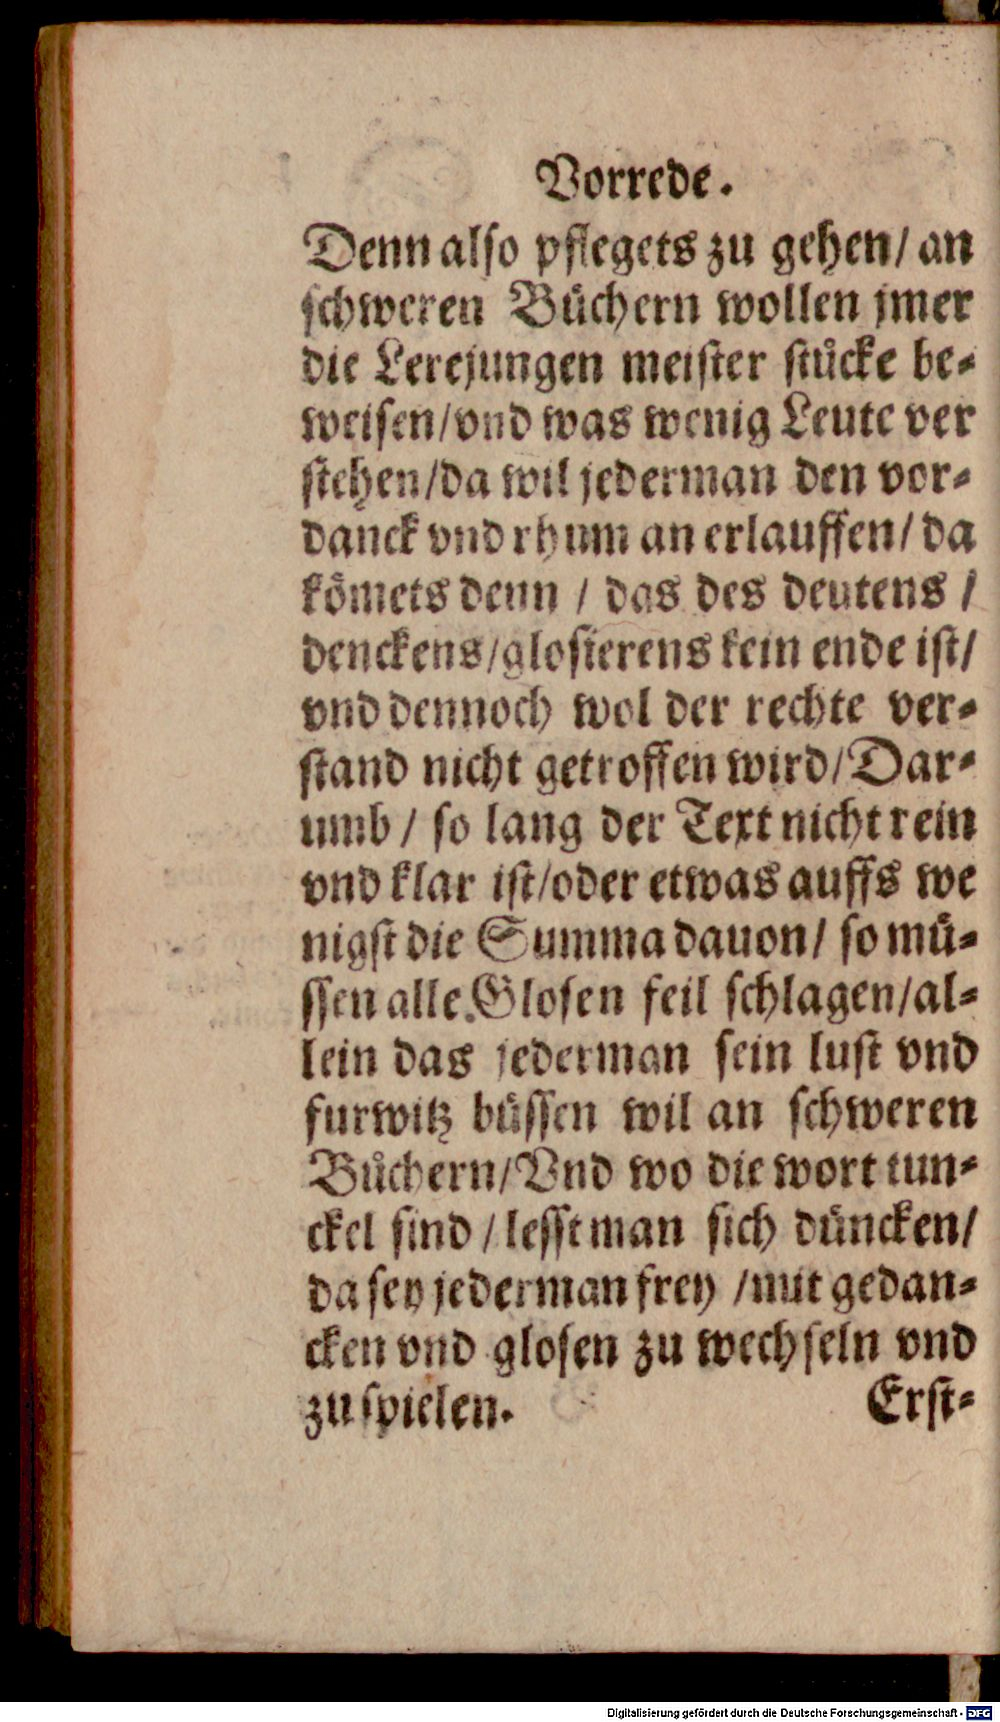 Vorrede.
Denn also pflegets zu gehen/ an
schweren Bůchern wollen jmer
die Lerejungen meister stůcke be-
weisen/vnd was wenig Leute ver
stehen/da wil jederman den vor-
danck vnd rhum an erlauffen/ da
kömets denn / das des deutens /
denckens/glosierens kein ende ist/
vnd dennoch wol der rechte ver-
stand nicht getroffen wird/Dar-
umb / so lang der Text nicht rein
vnd klar ist/oder etwas auffs we
nigst die Summa dauon/ so mů-
ssen alle Glosen feil schlagen/al-
lein das jederman sein lust vnd
furwitz bůssen wil an schweren
Bůchern/Vnd wo die wort tun-
ckel sind / lesst man sich důncken/
da sey jederman frey /mit gedan-
cken vnd glosen zu wechseln vnd
zu spielen. Erst-
Digitalisierung gefördert durch die Deutsche Forschungsgemeinschaft - DFG